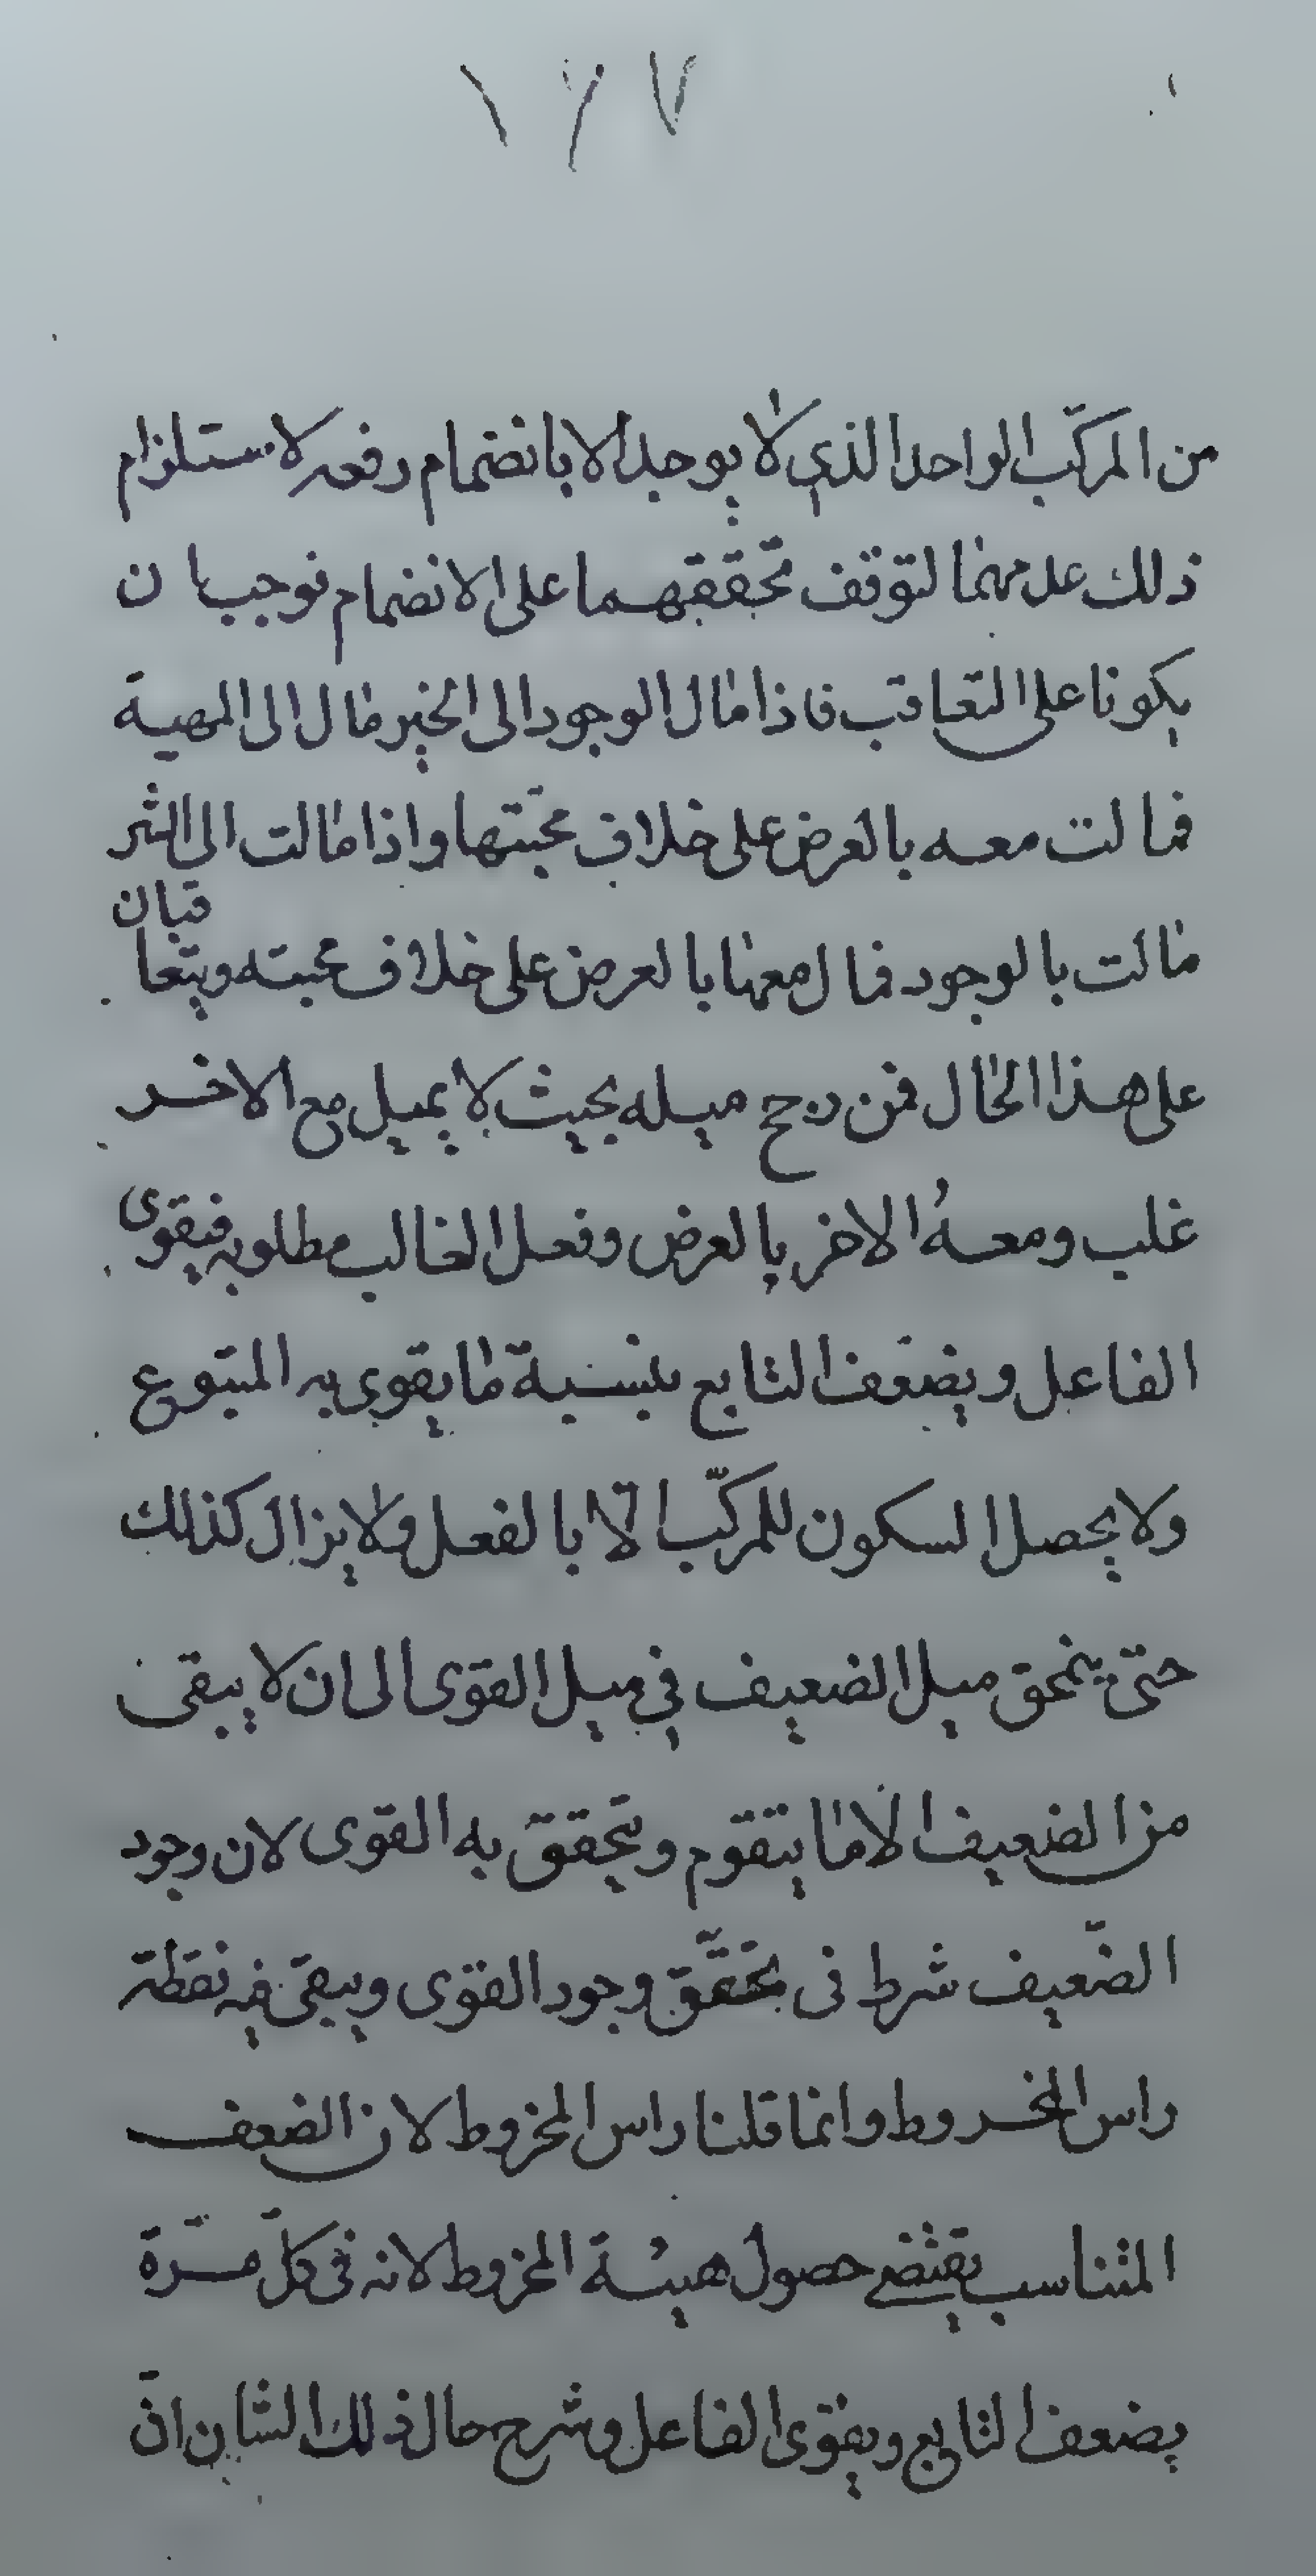 ١٦٧
من المركّب الواحد الذي لا يوجد الا بانضمام رفعه لاستلزام
ذلك عدمهما لتوقف تحققهما على الانضمام فوجب ان
يكونا على التعاقب فاذا مال الوجود الى الخير مال الى المهية
فمالت معه بالعرض على خلاف محبّتها واذا مالت الى الشر
مالت بالوجود فمال معها بالعرض على خلاف محبته ويتعاقبان
على هذا الحال فمن رجح ميله بحيث لا يميل مع الاخر
غلب ومعهُ الاخر بالعرض وفعل الغالب مطلوبه فيقوى
الفاعل ويضعف التابع بنسبة ما يقوى به المتبوع
ولا يحصل السكون للمركّب الّا بالفعل ولا يزال كذلك
حتى ينمحق ميل الضعيف في ميل القوى الى ان لا يبقى
من الضعيف الا ما يتقوم ويتحقق به القوى لان وجود
الضّعيف شرط فى تحقّق وجود القوى ويبقى فيه نقطة
راس المخروط وانما قلنا راس المخروط لان الضعف
المتناسب يقتضى حصول هيئة المخروط لانه فى كلّ مرّة
يضعف التابع ويقوى الفاعل وشرح حال ذلك الشان انّ